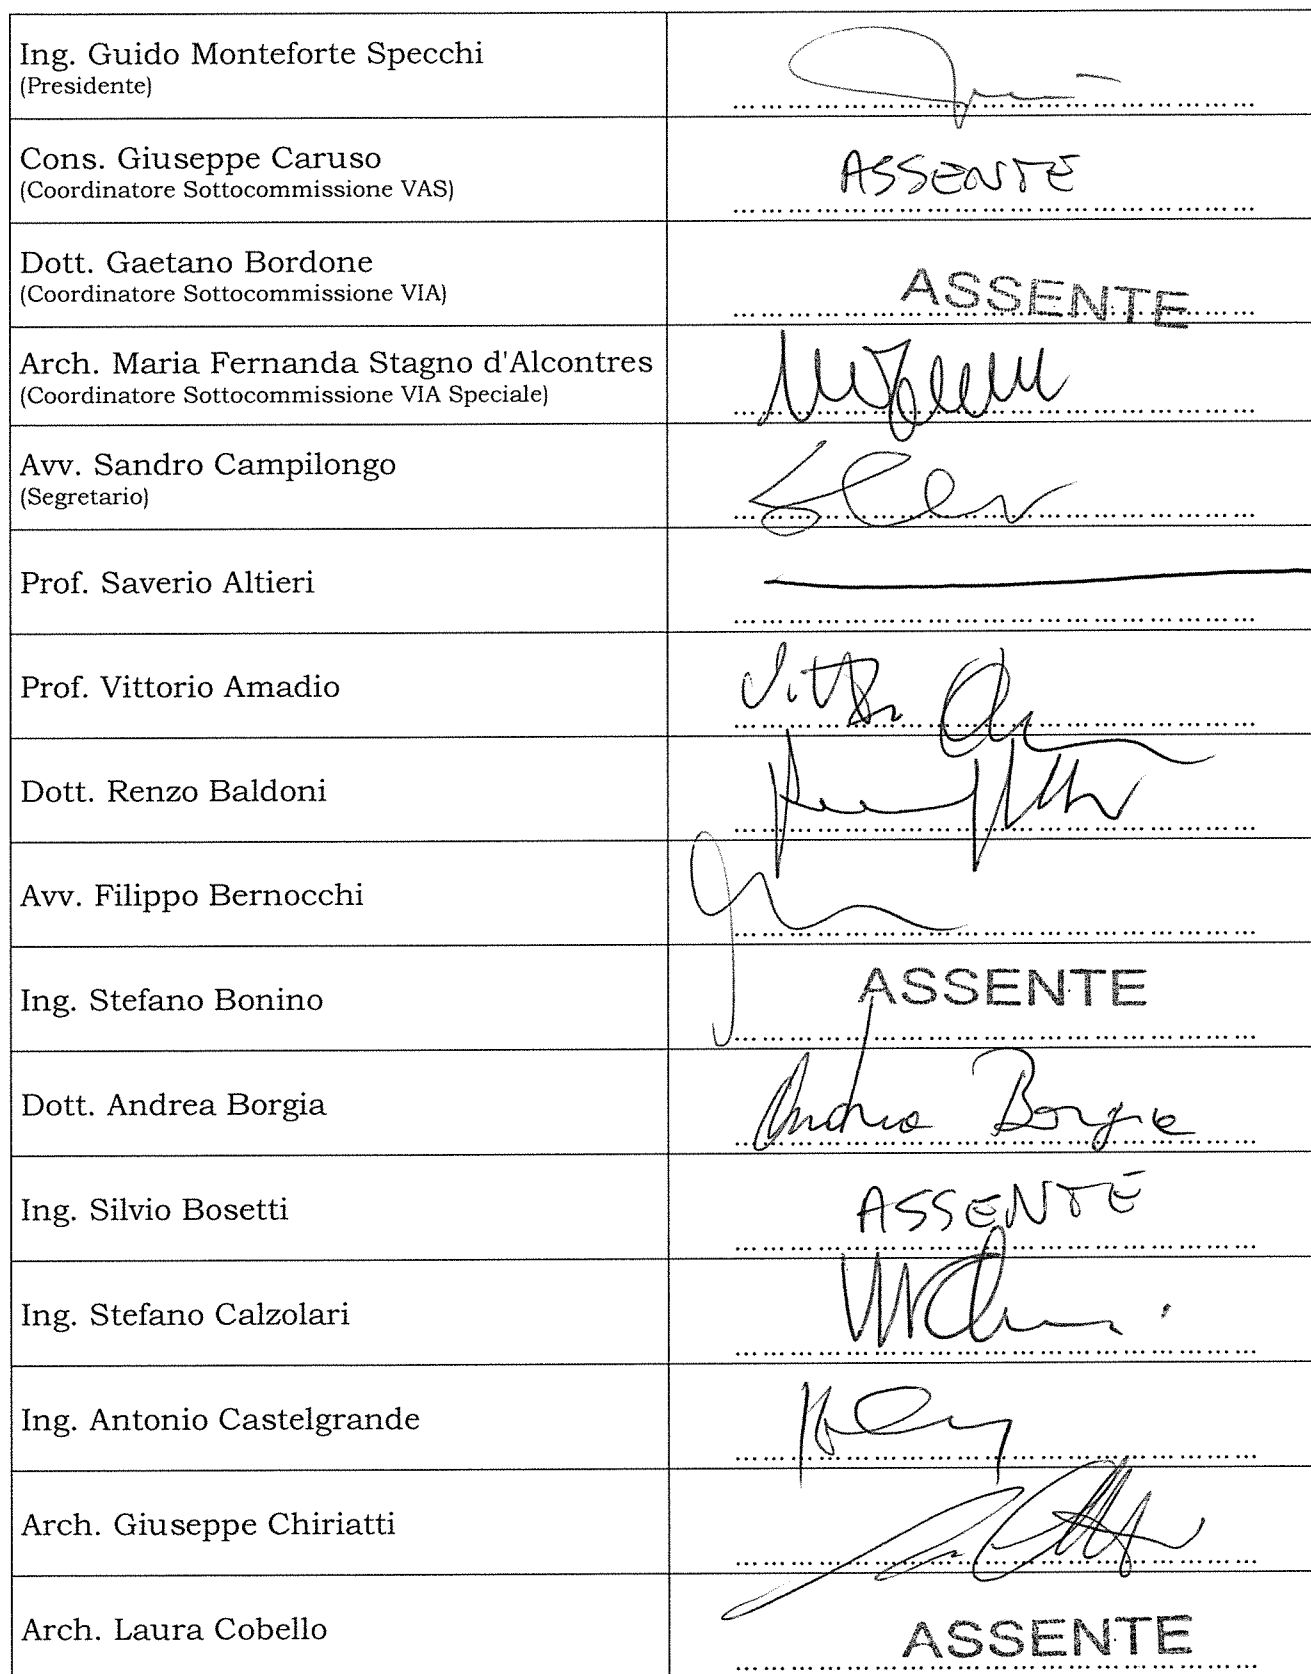 Ing. Guido Monteforte Specchi
(Presidente)
Cons. Giuseppe Caruso
(Coordinatore Sottocommissione VAS)
ASSENTE
Dott. Gaetano Bordone
(Coordinatore Sottocommissione VIA)
ASSENTE
Arch. Maria Fernanda Stagno d'Alcontres
(Coordinatore Sottocommissione VIA Speciale)
Avv. Sandro Campilongo
(Segretario)
Prof. Saverio Altieri
Prof. Vittorio Amadio
Dott. Renzo Baldoni
Avv. Filippo Bernocchi
Ing. Stefano Bonino
ASSENTE
Dott. Andrea Borgia
Andrea Borgia
Ing. Silvio Bosetti
ASSENTE
Ing. Stefano Calzolari
Ing. Antonio Castelgrande
Arch. Giuseppe Chiriatti
Arch. Laura Cobello
ASSENTE